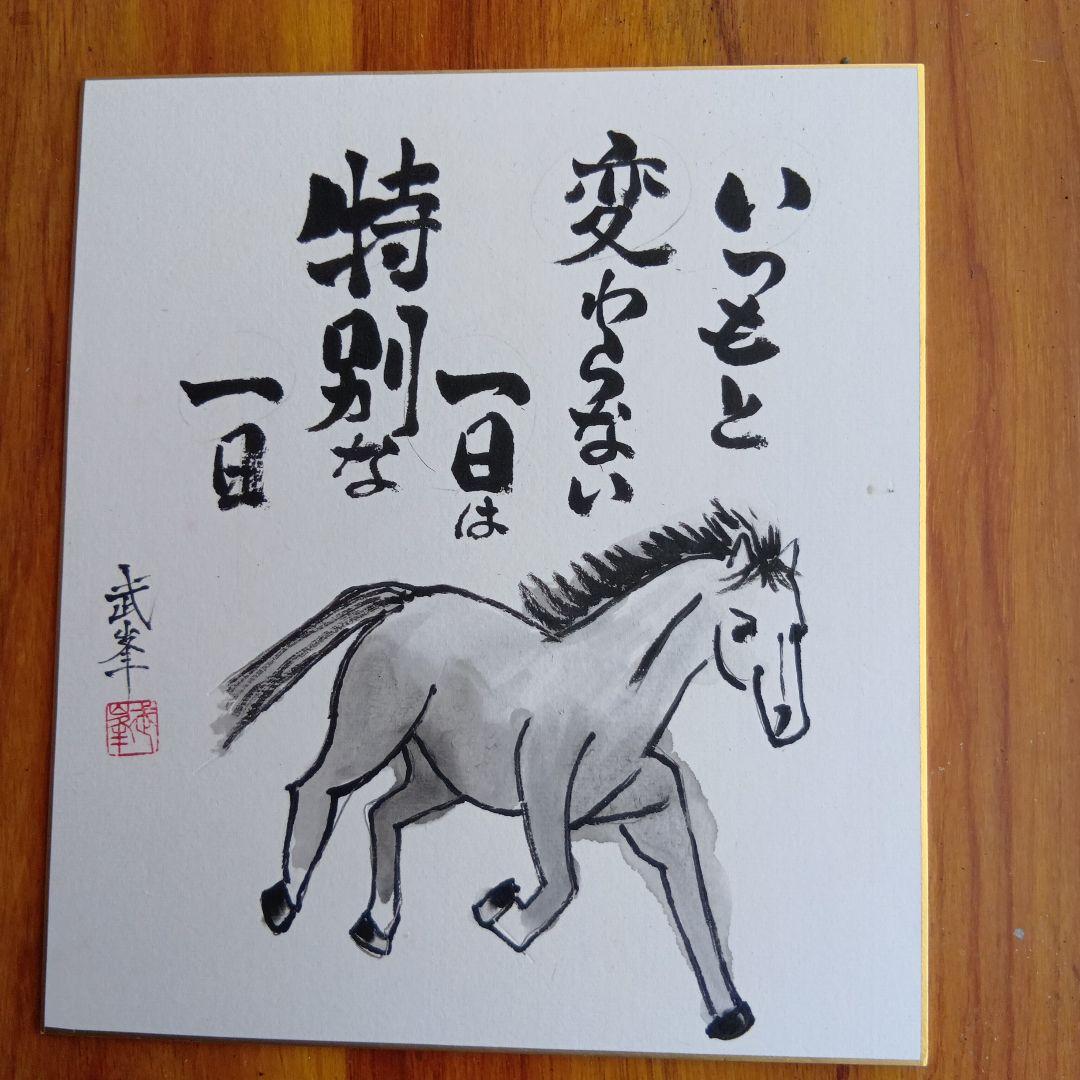 いつもと
変わらない
一日は
特別な
一日
武峯